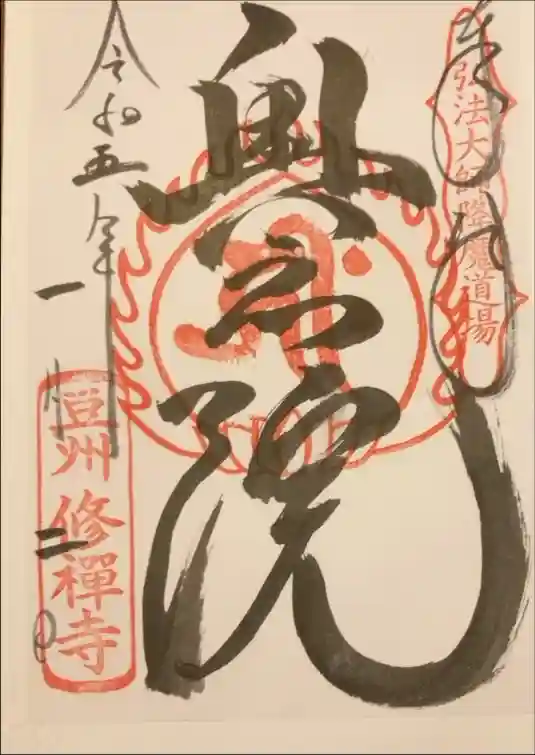 奉拝
弘法大師降魔道場
奥之院
令和五年
一月二日
豆州 修禪寺